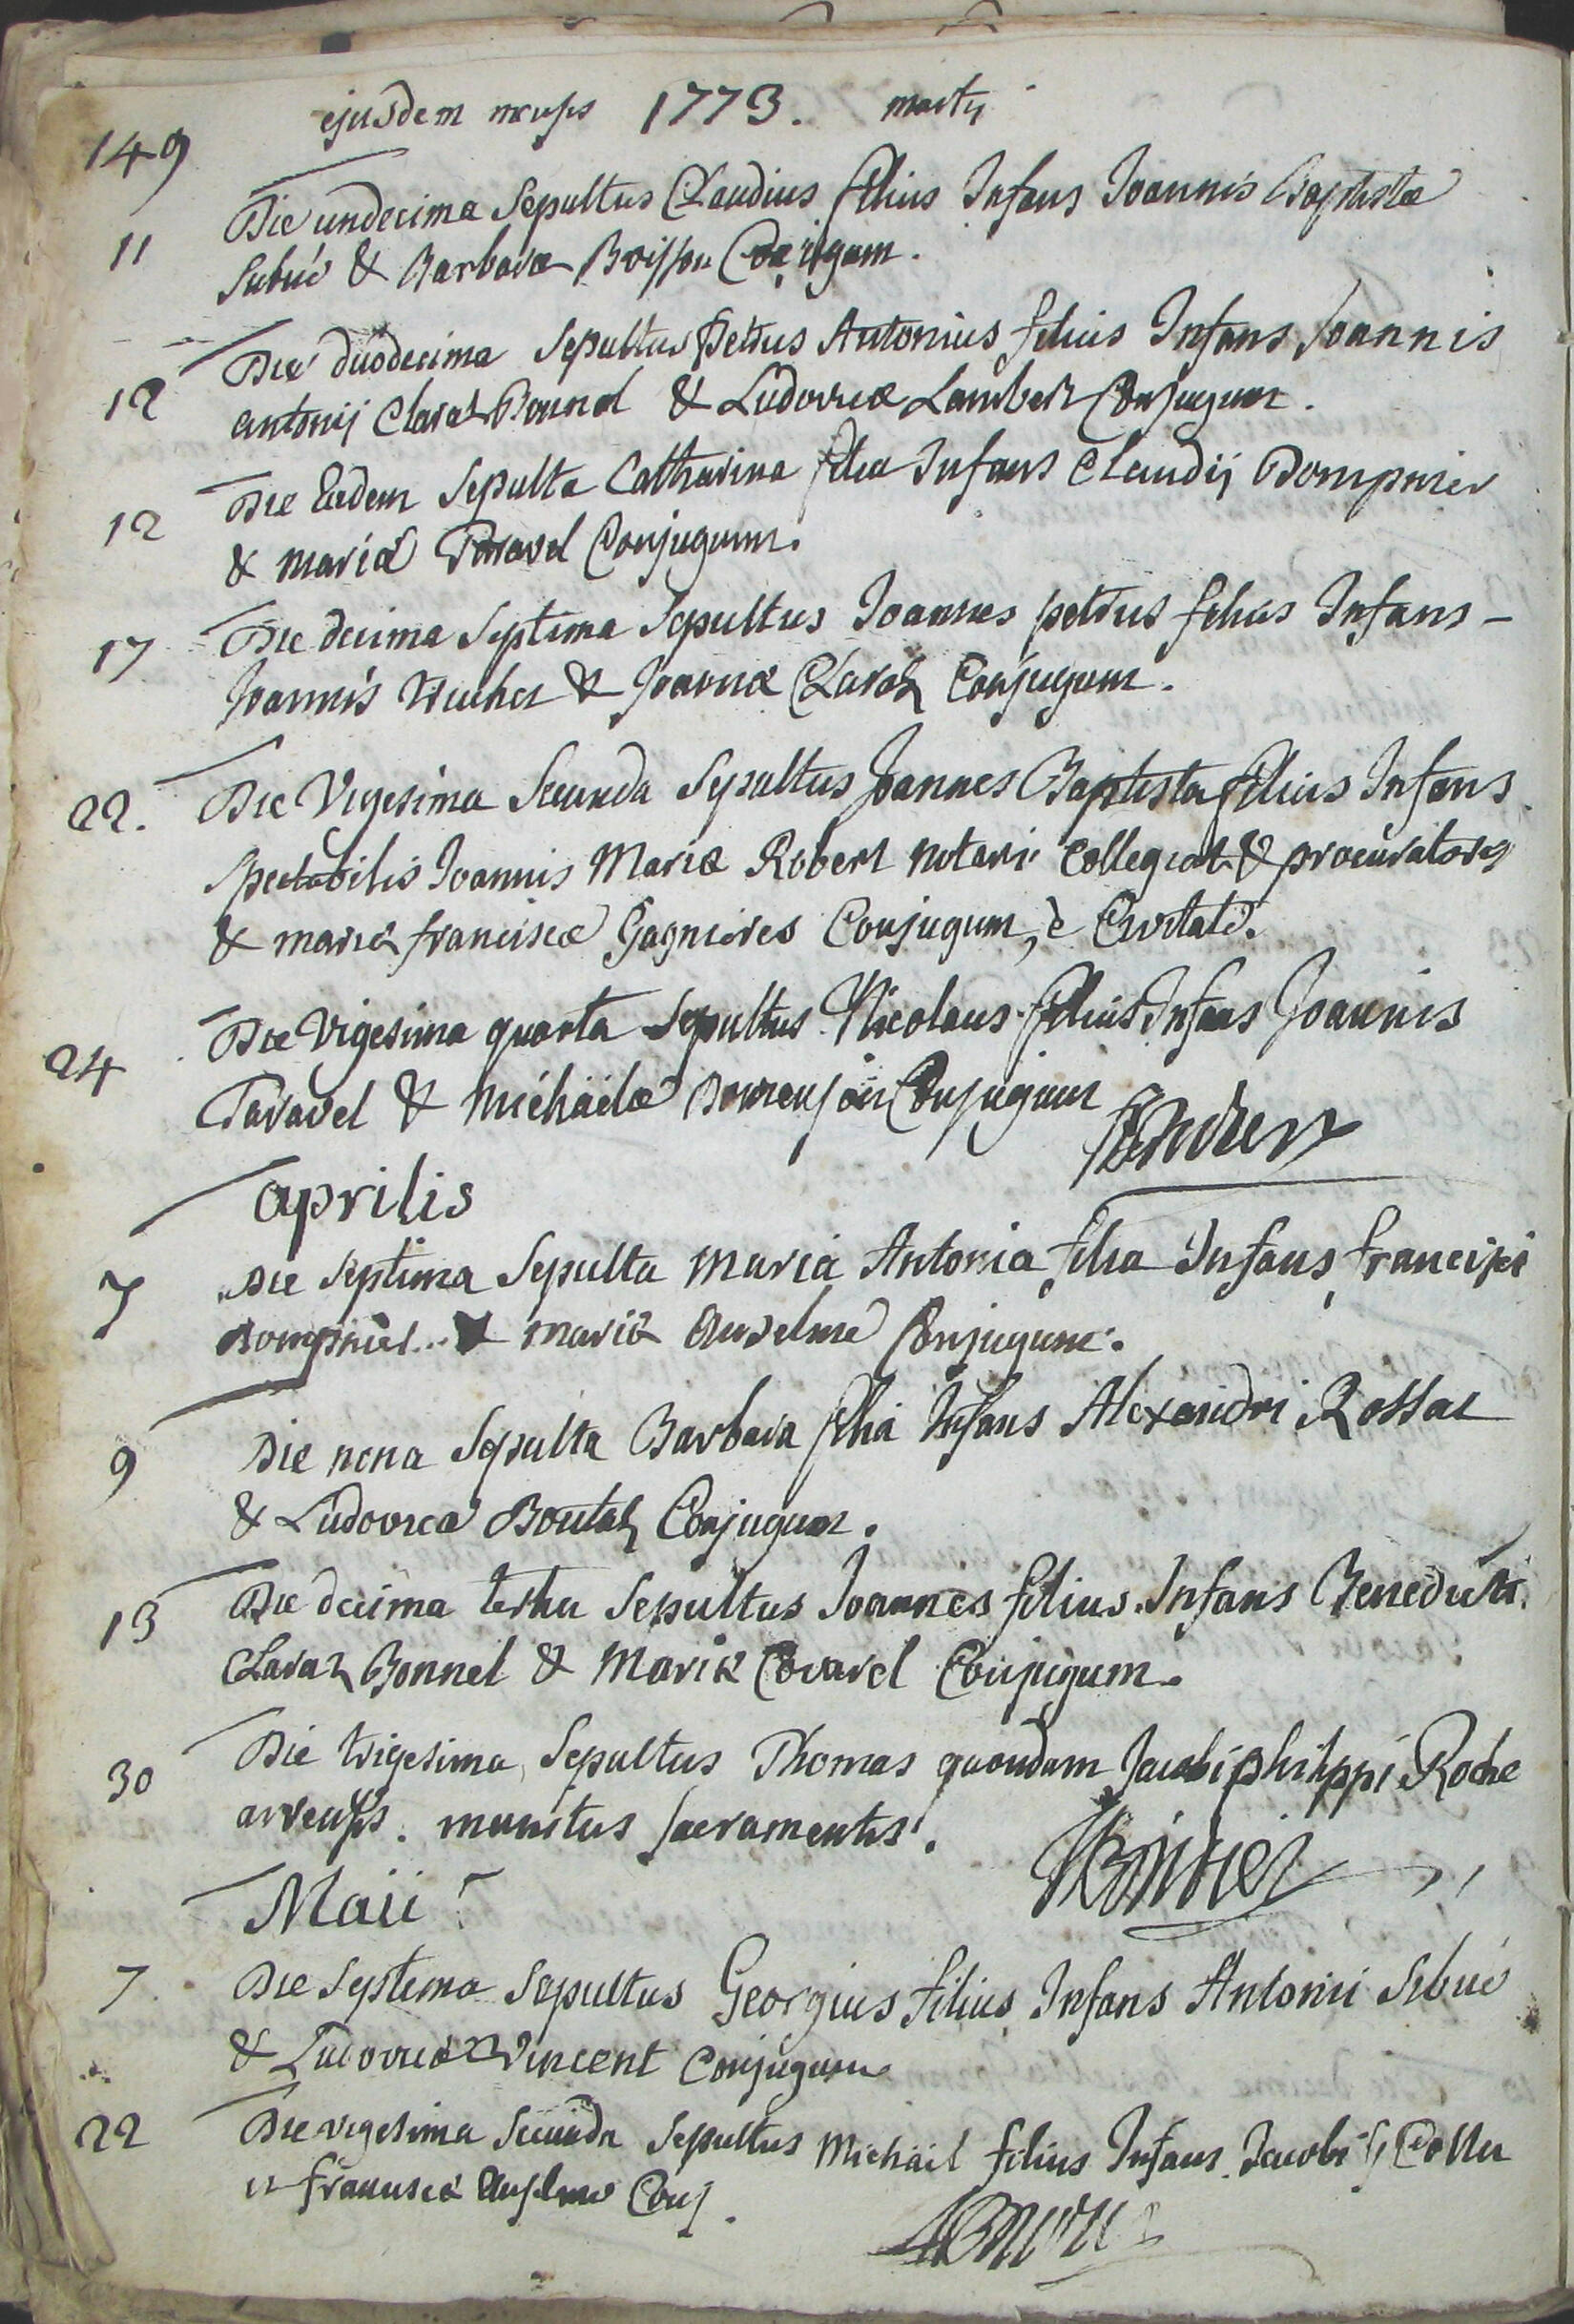 149
ejusdem mensis 1773. martij
11
Die undecima Sepultus Claudius filius Infans Joannis Baptistæ
Sibué & Barbaræ Boisson Conjugum.
12
Die duodecima Sepultus Petrus Antonius filius Infans Joannis
Antonij Claraz Bonnel & Ludovicæ Lambert Conjugum.
12
Die Eadem Sepulta Catharina filia Infans Claudij Dompnier
& mariæ Taravel Conjugum.
17
Die decima Septima Sepultus Joannes petrus filius Infans -
Joannis & Joannæ Claraz Conjugum.
22.
Die Vigesima Secunda Sepultus Joannes Baptista filius Infans
Spectabilis Joannis Mariæ Robert Notarii Collegiat & procuratoris
& mariæ franciscæ Gagnieres Conjugum, è Civitate.
24
Die Vigesima quarta Sepultus Nicolaus filius Infans Joannis
Taravel & Michäelæ Conjugum
aprilis
7
Die Septima Sepulta maria Antonia filia Infans francisci
Dompnier & mariæ Anselme Conjugum.
9
Die nona Sepulta Barbara filia Infans Alexandri Rossat
& Ludovicæ Boutaz Conjugum.
13
Die decima tertia Sepultus Joannes filius Infans Benedicti
Claraz Bonnel & Mariæ Covarel Conjugum.
30
Die trigesima Sepultus Thomas quondam Jacobi philippi Roche
arvensis. munitus Sacramentis.
Maii
7.
Die Septima Sepultus Georgius filius Infans Antonii Sibué
& Ludovicæ Vincent Conjugum
22
Die vigesima Secunda Sepultus Michäel filius Infans Jacobi
et franciscæ Anselme Conj.